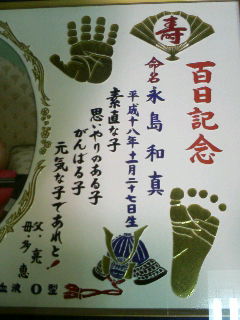 寿
百日記念
命名 永島和真
平成十八年十一月二十七日生
素直な子
思いやりのある子
がんばる子
元気な子であれと!
父・亮
母・多恵
血液 O 型